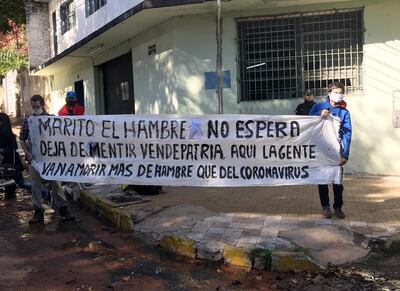 MARITO EL HAMBRE NO ESPERA
DEJA DE MENTIR VENDEPATRIA, AQUI LA GENTE
VAN A MORIR MAS DE HAMBRE QUE DEL CORONAVIRUS